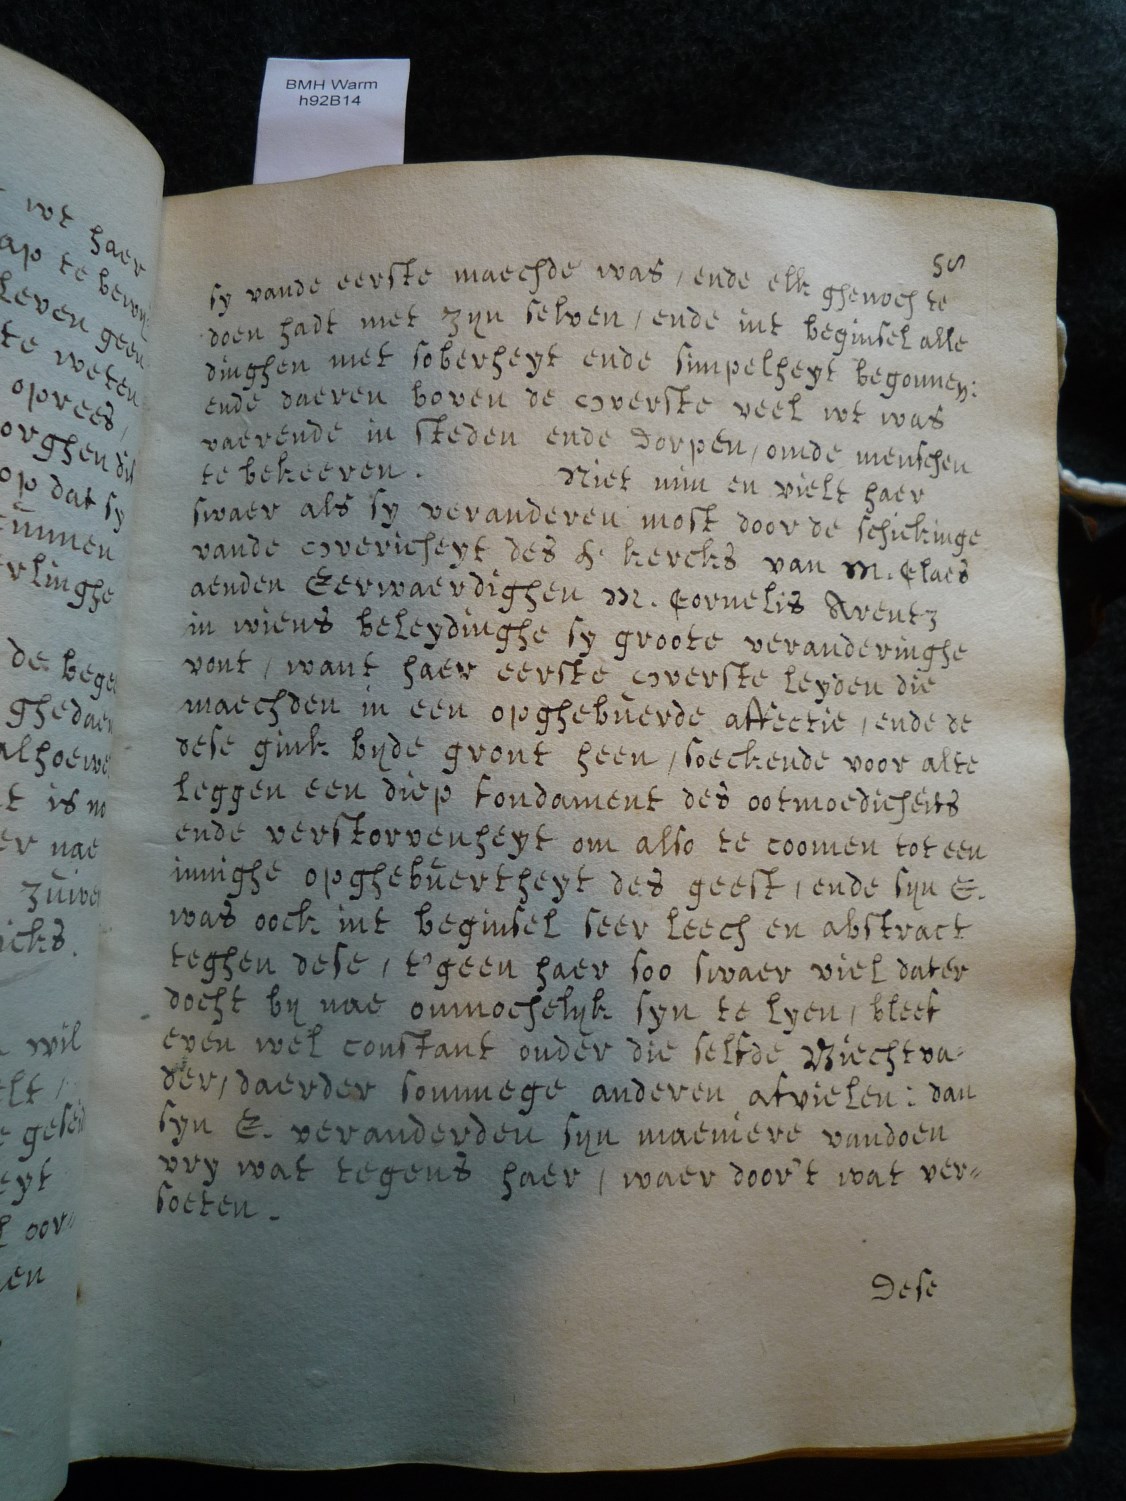 BMH Warm
h92B14
wt haer
ap te bewy
leven geen
te weten
oprees,
orghen di
op dat sy
cunnen
rlinghe
de bege
ghedaen
alhoewe
t is n
er nae
zuive
icks.
wil
elt,
e gesei
eyt
l oor
en
58
sy vande eerste maechde was, ende elk ghenoch te
doen hadt met zyn selven, ende int beginsel alle
dinghen met soberheyt ende simpelheyt begonnen:
ende daeren boven de overste veel wt was
vaerende in steden ende dorpen, omde menschen
te bekeeren. Niet min en vielt haer
swaer als sy veranderen most door de schickinge
vande overicheyt des H. kercks van M. Claes
aenden Eerwaerdighen M. Cornelis Arentz
in wiens beleydinghe sy groote veranderinghe
vont, want haer eerste overste leyden die
maechden in een opghebuerde affectie, ende de
dese gink byde gront heen, soeckende voor alte
leggen een diep fondament des ootmoedicheits
ende verstorvenheyt om also te coomen tot een
innighe opghebuertheyt des geest, ende syn E.
was oock int beginsel seer leech en abstract
teghen dese, t'geen haer soo swaer viel dater
docht by nae onmochelyk syn te lyen, bleef
even wel constant onder die selfde Biechtva-
der, daerder sommege anderen afvielen: dan
syn E. veranderden syn maeniere vandoen
vry wat tegens haer, waer door't wat ver-
soeten.
Dese